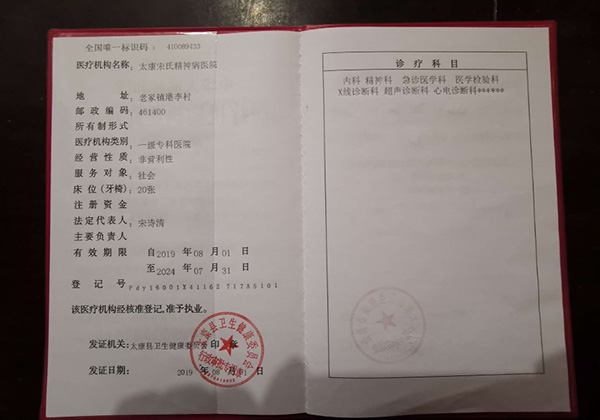 全国唯一标识码：410089433
医疗机构名称：太康宋氏精神病医院
地 址：老冢镇港李村
邮政编码：461400
所有制形式
医疗机构类别：一级专科医院
经营性质：非营利性
服务对象：社会
床位(牙椅)：20张
注册资金
法定代表人：宋诗清
主要负责人
有效期限 自2019 年08 月01 日
至2024 年07 月31 日
登记号
该医疗机构经核准登记，准予执业。
发证机关：太康县卫生健康委员会 印 章
发证日期： 2019 年 08 月 01 日
太康县卫生健康委员会
行政审批专用章
诊疗科目
内科 精神科 急诊医学科 医学检验科
X线诊断科 超声诊断科 心电诊断科******